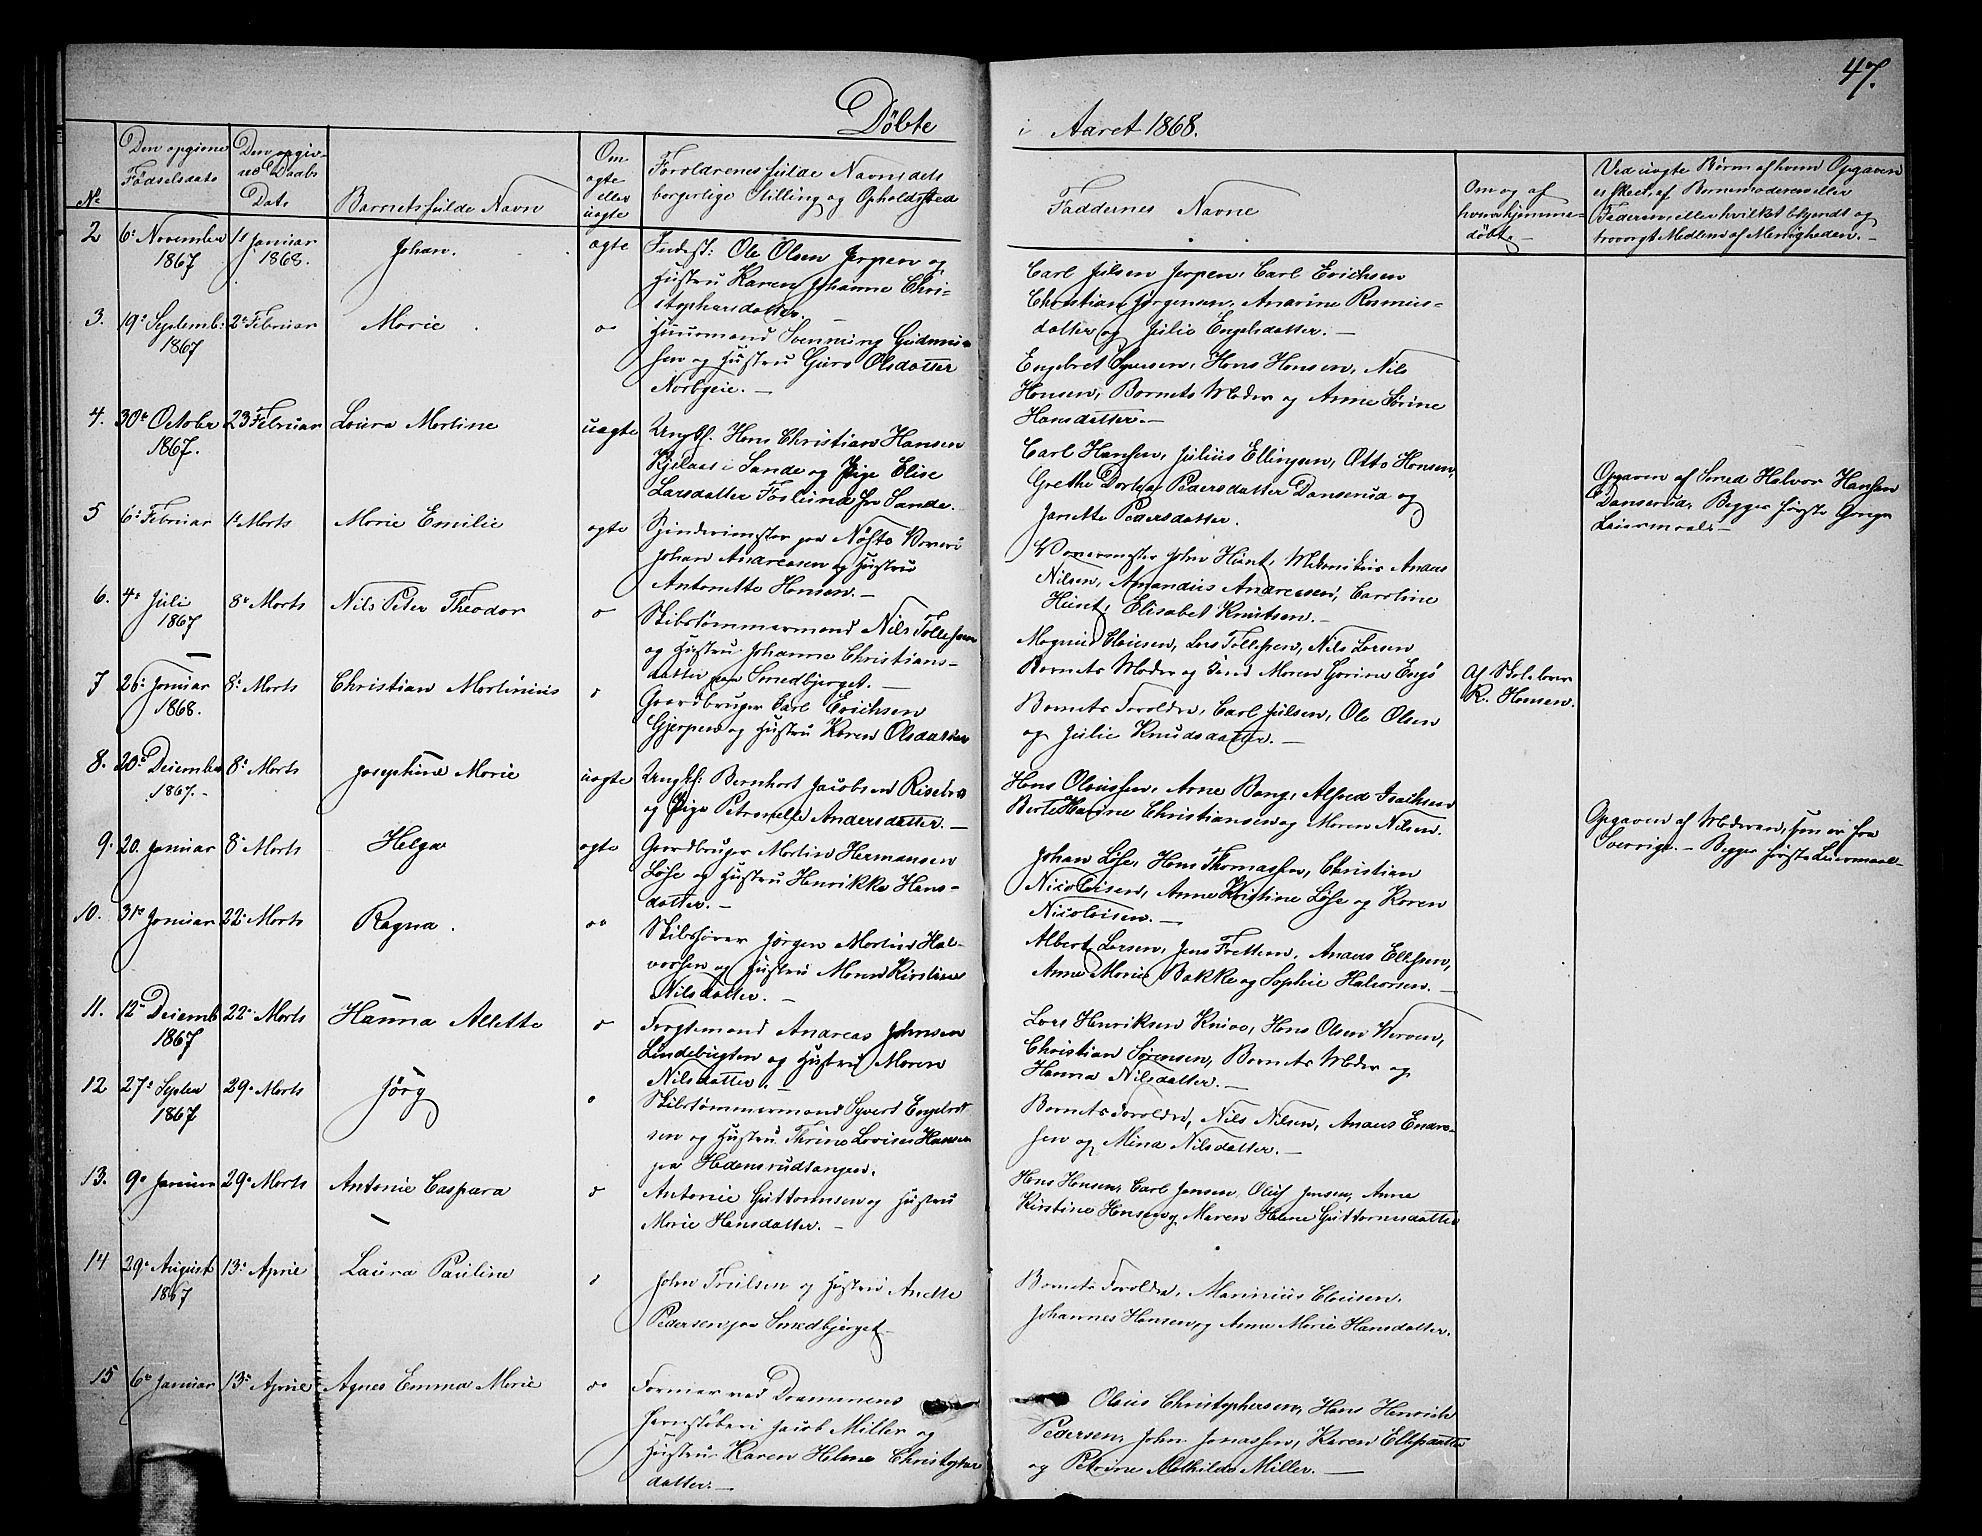 47.
Døbte i Aaret 1868.
No
Den opgivne Fødselsdato
Den opgivne Daabs Dato
Barnets fulde Navn
Om ægte eller uægte
Forældrenes fulde Navn, dets borgerlige Stilling og Opholdssted
Faddernes Navne
Om og af hvem hjemmedøbt
Ved uægte Børn af hvem Opgaven er skeet, af Barnemoderen eller Faderen, eller hvilket bekjendt og troværgt Medlem af Menigheden.
2 6te November 1ste Januar Johan. ægte Inderst: Ole Olsen Jerpen og
1867 1868. Hustru Karen Johanne Chri-
stophersdatter.
Carl Julsen Jerpen, Carl Erichsen
Christian Jørgensen, Anarine Rasmus-
datter og Julie Engelsdatter. —
3. 19de Septemb: 2den Februar Marie Huusmand Svenning Gudmun-
1867 sen og Hustru Guro Olsdatter
Norbgeie. —
Engebret Syversen, Hans Hansen, Nils
Hansen, Barnets Moder og Anne Sørine
Hansdatter. —
4. 30te Octobr 23de Februar Laura Martine uægte Ungkl. Hans Christian Hansen
1867. Kjelaas i Sande og Pige Elise
Larsdatter Foslund fra Sande.
Carl Hansen, Julius Ellingsen, Otto Hansen,
Grethe Dorthea Pedersdatter Danserud og
Janette Pedersdatter.
Opgaven af Smed Halvor Hansen
Danserud. Begges første Gangs
Leiermaal. —
5 6te Februar 1ste Marts Marie Emilie ægte Spindemester paa Nøste Væveri
Johan Andreasen og Hustru
Antonette Hansen. —
Vævemester John Hunt, Mekanikus Anders
Nilsen, Amandus Andreasen, Caroline
Hunt, Elisabet Knutsen. —
6. 4de Juli 8de Marts Nils Peter Theodor Skibstømmermand Nils Tollefsen
1867 og Hustru Johanne Christians-
datter paa Smedbjerget. —
Magnus Clausen, Lars Tollefsen, Nils Larsen
Barnets Moder og Maren Gurine Engø
7 26de Januar 8de Marts Christian Martinius Gaardbruger Carl Erichsen
1868. Gjerpen og Hustru Karen Olsdatter
Barnets Forældre, Carl Julsen, Ole Olsen
og Julie Knudsdatter. —
Af Skolelærer
R. Hansen.
8. 20de Decembr 8de Marts Josephine Marie uægte Ungkl: Bernhart Jacobsen
1867. og Pige Petronelle Andersdatter. —
Hans Olaussen, Arne Bang, Alfred Isachsen
Berte Marine Christiansen og Maren Nilsen.
Opgaven af Moderen, hun er fra
Sverrige. — Begges første Leiermaal. —
9. 20. Januar 8de Marts Helga ægte Gaardbruger Martin Hermansen
Løse og Hustru Henrikke Hans-
datter. —
Johan Løse, Hans Thomassen, Christian
Nicolaisen, Anne Kristine Løse og Karen
Nicolaisen. —
10. 31te Januar 22de Marts Ragna. Skibsfører Jørgen Martin Hal-
vorsen og Hustru Maren Kirstine
Nilsdatter. —
Albert Larsen, Jens Trettem, Anders Ellefsen,
Anne Marie Bakke og Sophie Halvorsen. —
11. 12te Decemb 22de Marts Hanna Alette Færgemand Andreas Johnsen
1867 Lindebugten og Hustru Maren
Nilsdatter. —
Lars Henriksen Knive, Hans Olsen Verven,
Christian Sørensen, Barnets Moder og
Hanna Nilsdatter. —
12 27de Septbr 29de Marts Jörg Skibstømmermand Syvert Engelret-
1867 sen og Hustru Thrine Lovise Hansen
paa Hedensrudtangen.
Barnets Forældre, Nils Nilsen, Anders Endre-
sen og Mina Nilsdatter. —
13. 9de Januar 29de Marts Antonie Caspara Antonie Guttormsen og Hustru
Marie Hansdatter. —
Hans Hansen, Carl Jensen, Oluf Jensen, Anne
Kirstine Hansen og Maren Helene Guttormsdatter
14 29de August 13de Aprie Laura Pauline John Trulsen og Hustru Anette
1867 Pedersen paa Smedbjerget. —
Barnets Forældre, Marinius Clausen,
Johannes Hansen, og Anne Marie Hansdatter.
15 6te Januar 13de Aprie Agnes Emma Marie Formær ved Drammens
Jernstøberi Jacob Miller og
Hustru Karen Helene Christopher
datter. —
Olaus Christophersen, Hans Henrich
Pedersen, John Jonassen, Karen Ellefsdatter
og Petrine Mathilde Miller. —